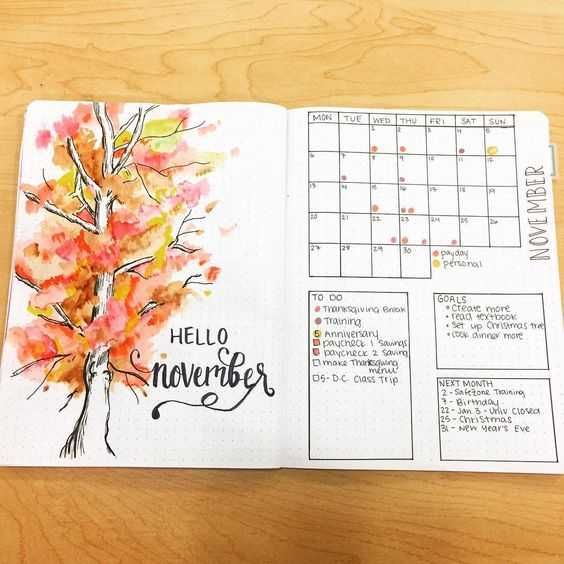 HELLO
november
MON TUE WED THU FRI SAT SUN
1 2 3 4 5
6 7 8 9 10 11 12
13 14 15 16 17 18 19
20 21 22 23 24 25 26
27 28 29 30
payday
personal
NOVEMBER
TO DO
Thanksgiving Break
Training
5 Anniversary
paycheck 1 savings
paycheck 2 saving
make Thanksgiving
menu
5- D.C. Class Trip
GOALS
Create more
read textbook
Set up Christmas tree
Cook dinner more
NEXT MONTH
2 - SafeZone Training
7 - Birthday
22 - Jan 3 - Univ Closed
25 - Christmas
31 - New Year's Eve